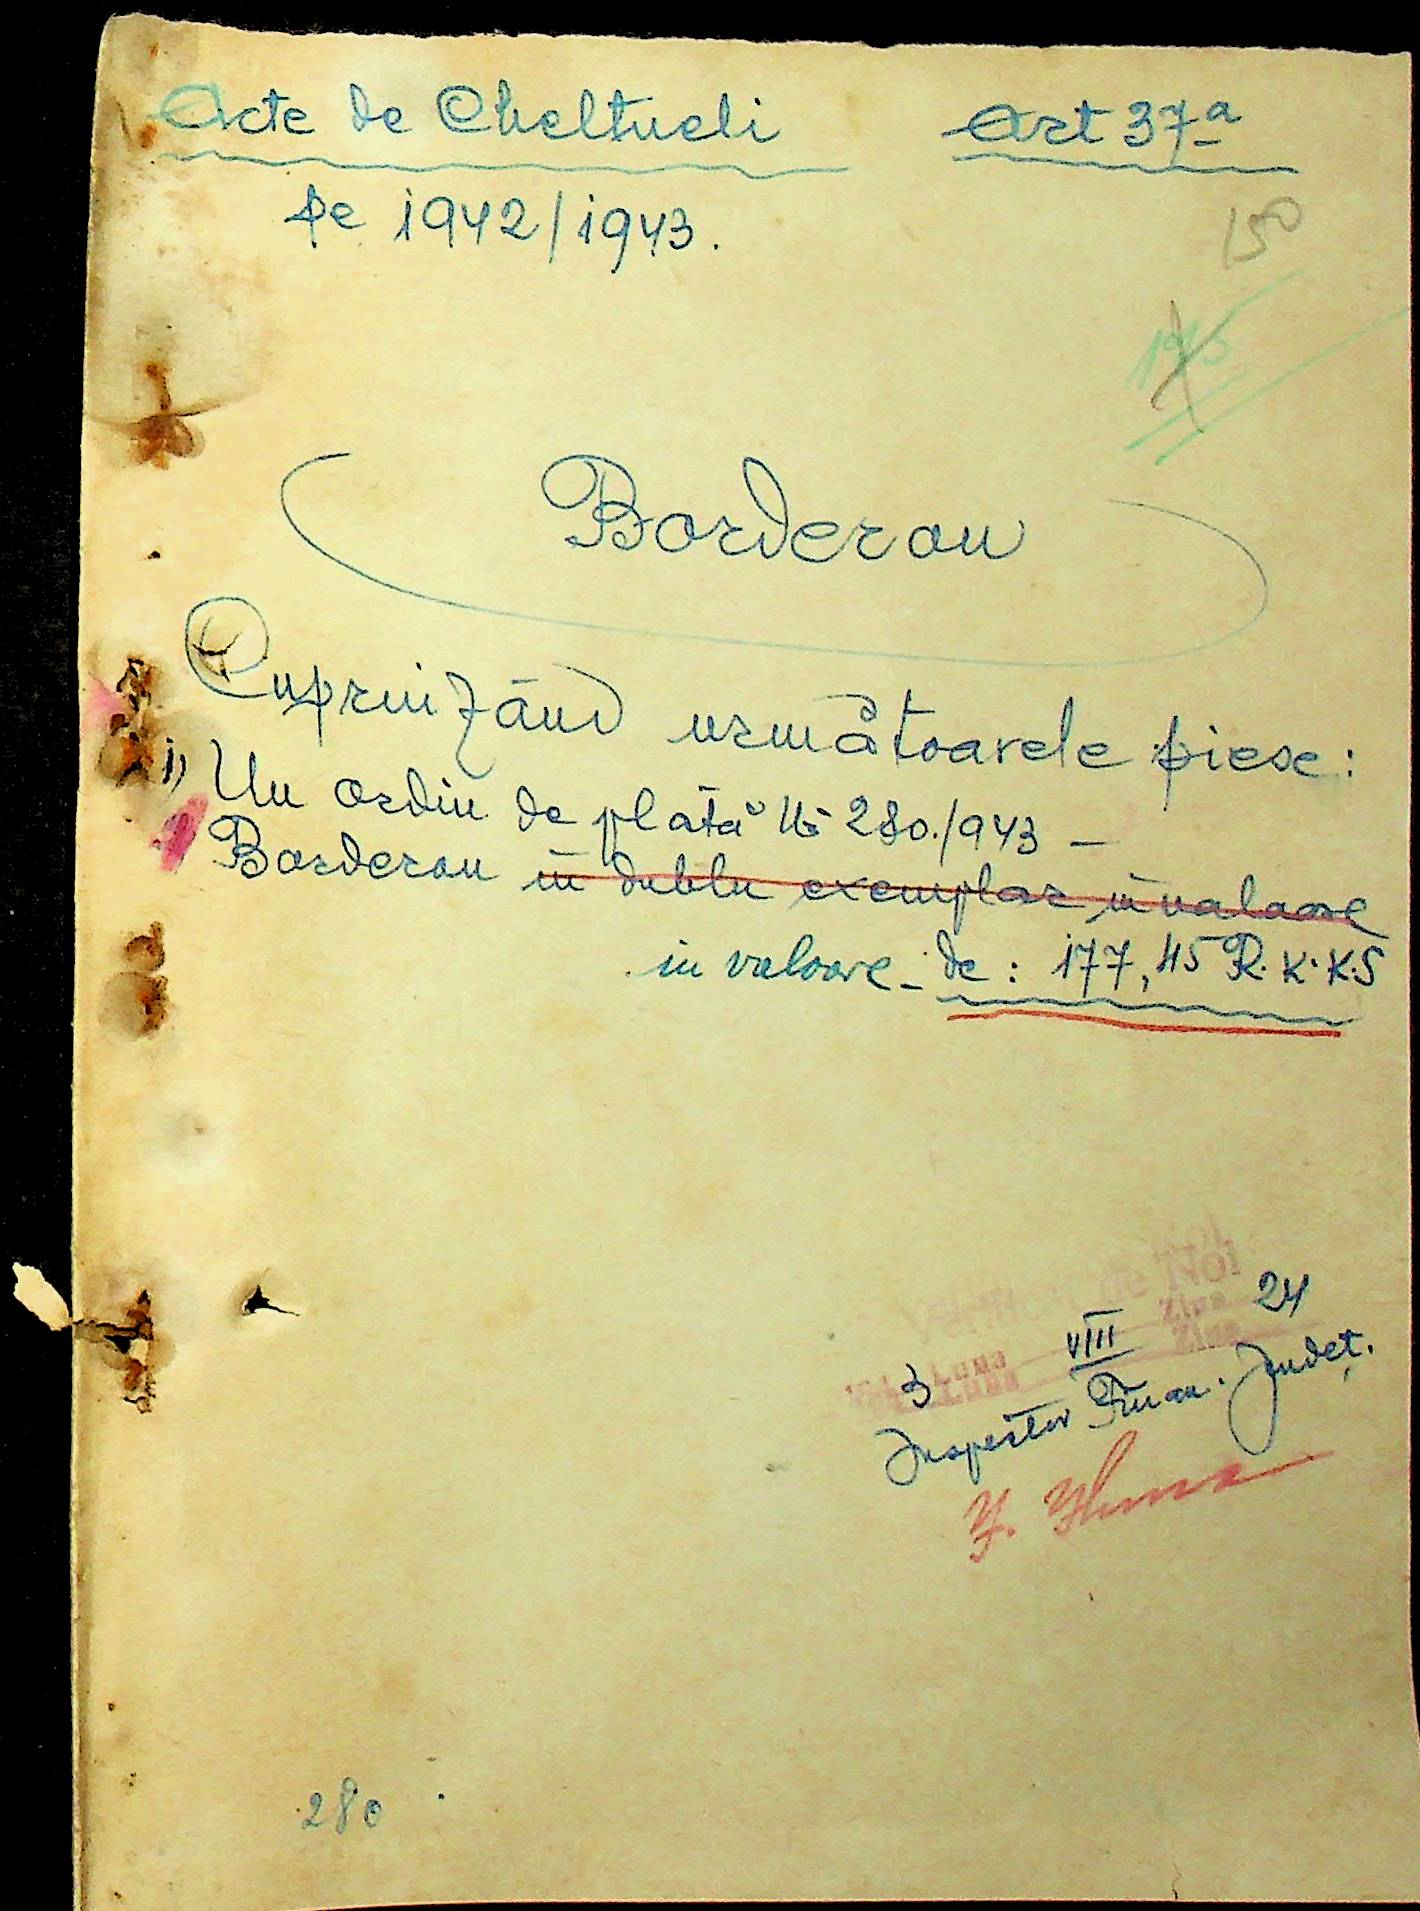 Acte de Cheltueli Art 37a
pe 1942/1943.
150
Borderou
Cuprinzând următoarele piese:
1) Un ordin de plată No 280./943 –
Borderou în dublu exemplar în valoare
in valoare – de : 177,45 R.K.K.S
Verificat de Noi
24
Ziua
VIII
Luna
Ziua
3
Inspector Finan. Județ.
280